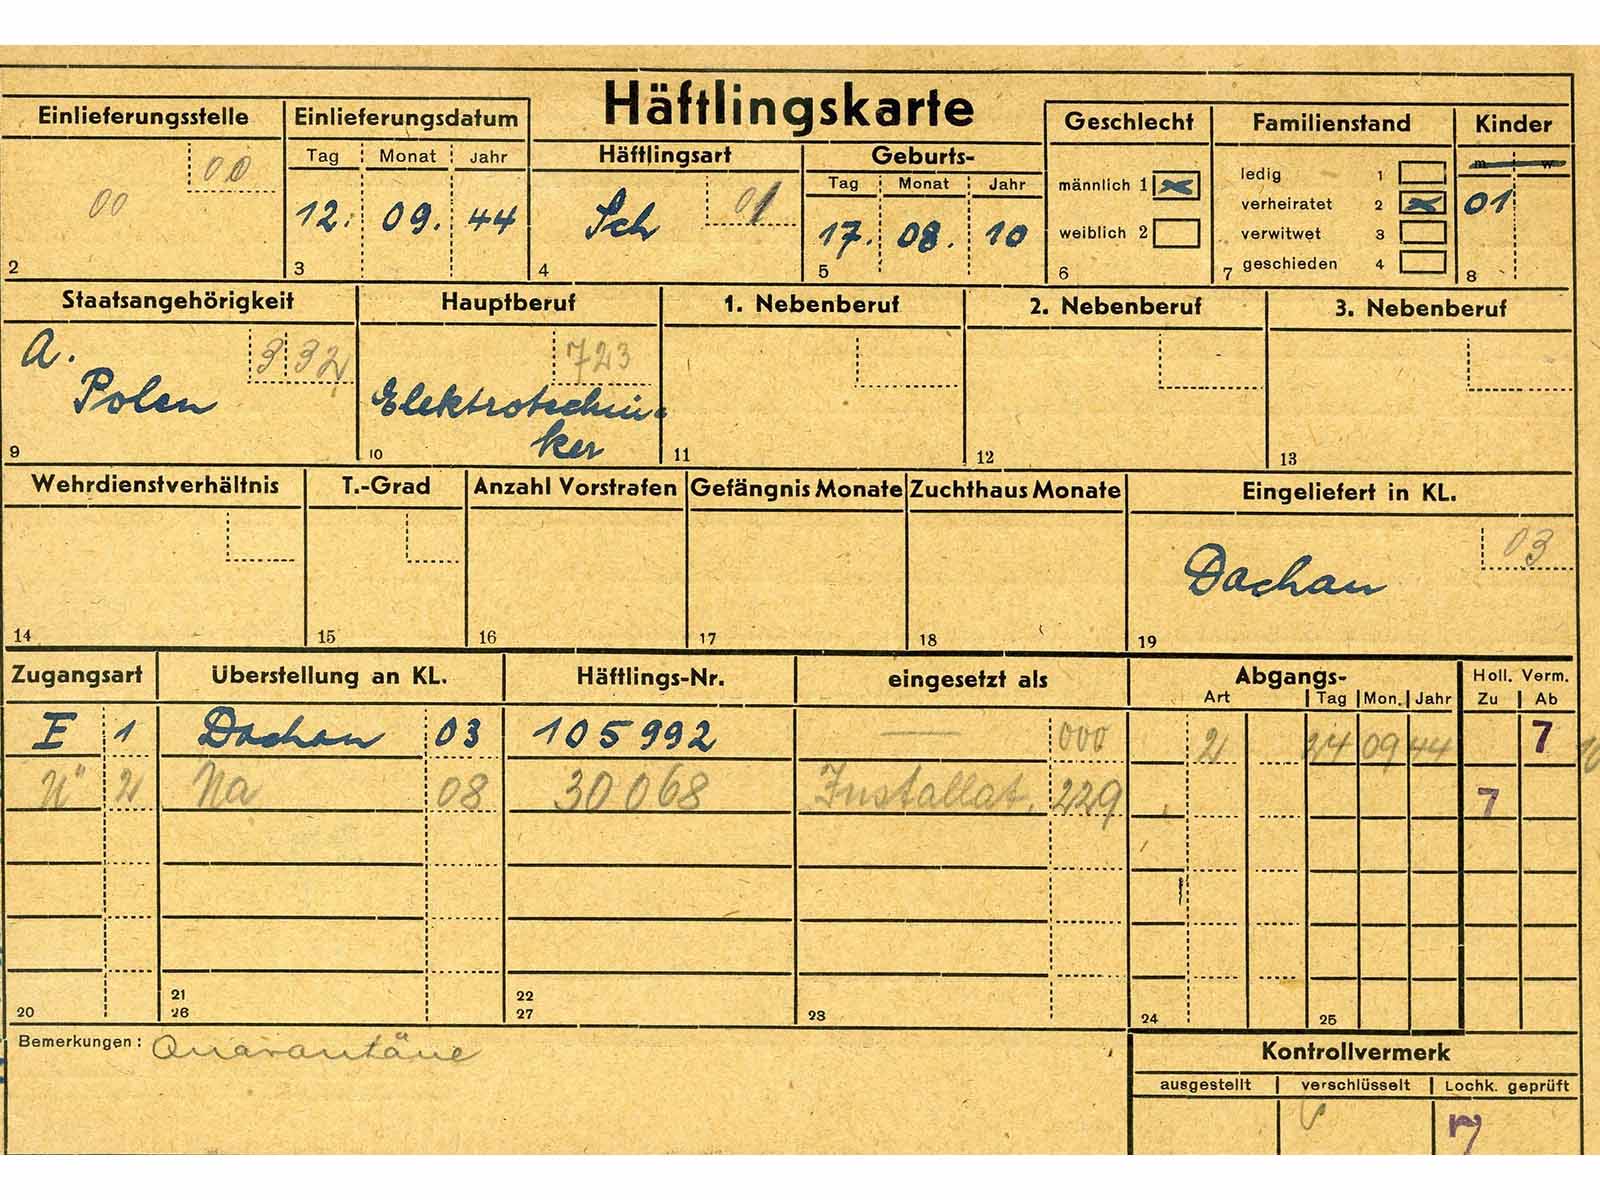 Häftlingskarte
Einlieferungsstelle
00
00
2
Einlieferungsdatum
Tag Monat Jahr
12. 09. 44
3
Häftlingsart
Sch 01
4
Geburts-
Tag Monat Jahr
17. 08. 10
5
Geschlecht
männlich 1
weiblich 2
6
Familienstand
ledig 1
verheiratet 2
verwitwet 3
geschieden 4
7
Kinder
m w
01
8
Staatsangehörigkeit
A. 332
Polen
9
Hauptberuf
723
Elektrotechni-
ker
10
1. Nebenberuf
11
2. Nebenberuf
12
3. Nebenberuf
13
Wehrdienstverhältnis
14
T.-Grad
15
Anzahl Vorstrafen
16
Gefängnis Monate
17
Zuchthaus Monate
18
Eingeliefert in KL.
03
Dachau
19
Zugangsart Überstellung an KL. Häftlings-Nr. eingesetzt als Abgangs- Holl. Verm.
Art Tag Mon. Jahr Zu Ab
E 1 Dachau 03 105992 — 000 2 24 09 44 7
Ü 2 Na 08 30068 Installat. 229 7
20 21 22 23 24 25
26 27
Bemerkungen: Quarantäne
Kontrollvermerk
ausgestellt verschlüsselt Lochk. geprüft